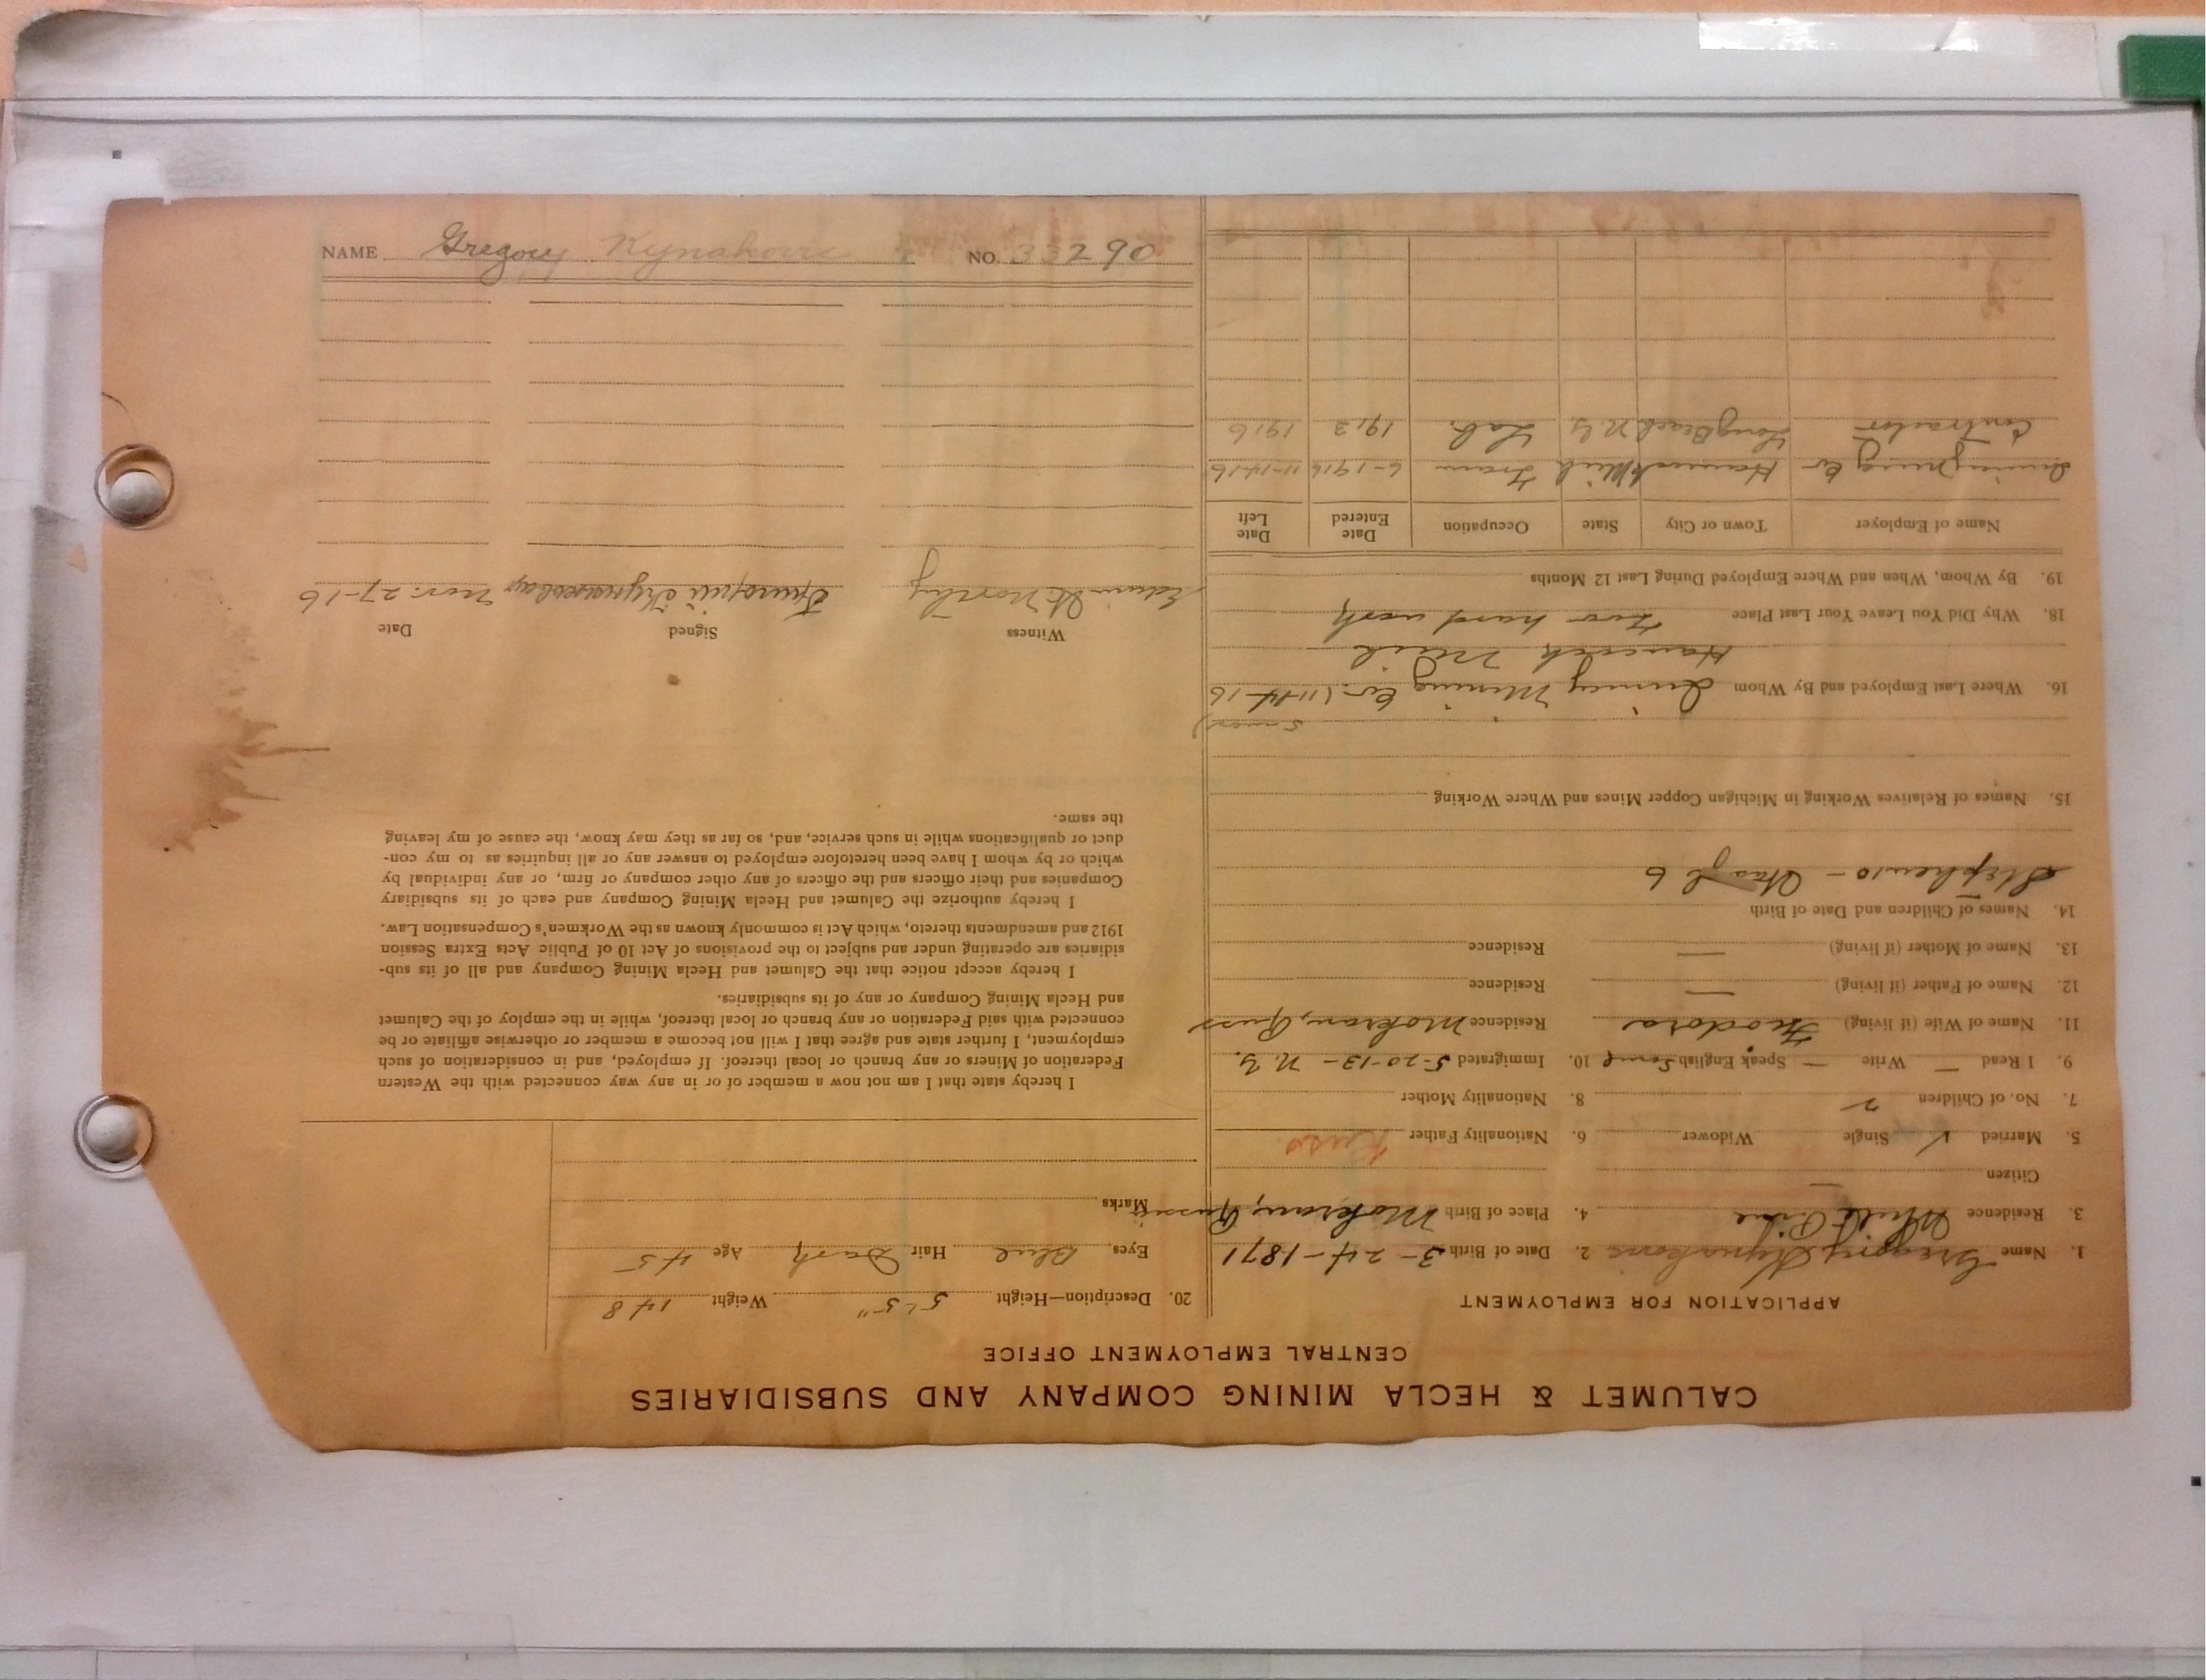 CALUMET & HECLA MINING COMPANY AND SUBSIDIARIES
CENTRAL EMPLOYMENT OFFICE
APPLICATION FOR EMPLOYMENT
1. Name Gregory Kynakovic 2. Date of Birth 3-24-1871
3. Residence White Pine 4. Place of Birth Mokran, Russia
Citizen —
5. Married √ Single Widower 6. Nationality Father Russ
7. No. of Children 2 8. Nationality Mother
9. I Read — Write — Speak English Some 10. Immigrated 5-20-13- N.Y.
11. Name of Wife (if living) Feodora Residence Mokran, Russ
12. Name of Father (if living) — Residence
13. Name of Mother (if living) — Residence
14. Names of Children and Date of Birth
Stephen 10 - 6
15. Names of Relatives Working in Michigan Copper Mines and Where Working
16. Where Last Employed and By Whom Quincy Mining Co. (11-14-16
Hancock Mich
18. Why Did You Leave Your Last Place Too hard work
19. By Whom, When and Where Employed During Last 12 Months
Name of Employer Town or City State Occupation Date Entered Date Left
Quincy Mining Co Hancock Mich Tram 6-1916 11-14-16
Contractor Long Beach N.Y Lab. 1913 1916
20. Description—Height 5'-5" Weight 148
Eyes Blue Hair Dark Age 45
Marks
I hereby state that I am not now a member of or in any way connected with the Western
Federation of Miners or any branch or local thereof. If employed, and in consideration of such
employment, I further state and agree that I will not become a member or otherwise affiliate or be
connected with said Federation or any branch or local thereof, while in the employ of the Calumet
and Hecla Mining Company or any of its subsidiaries.
I hereby accept notice that the Calumet and Hecla Mining Company and all of its sub-
sidiaries are operating under and subject to the provisions of Act 10 of Public Acts Extra Session
1912 and amendments thereto, which Act is commonly known as the Workmen's Compensation Law.
I hereby authorize the Calumet and Hecla Mining Company and each of its subsidiary
Companies and their officers and the officers of any other company or firm, or any individual by
which or by whom I have been heretofore employed to answer any or all inquiries as to my con-
duct or qualifications while in such service, and, so far as they may know, the cause of my leaving
the same.
Witness Signed Date
Edwin Nov. 27-16
NAME Gregory Kynakovic NO. 33290